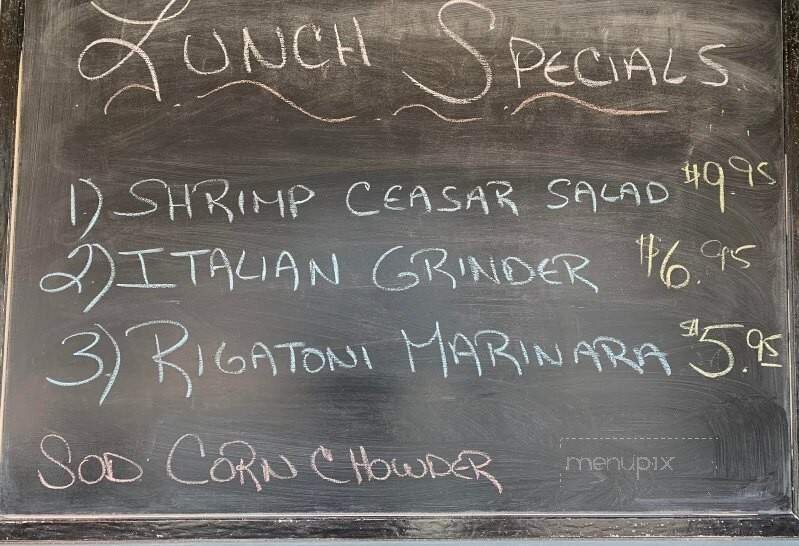 LUNCH SPECIALS
1) SHRIMP CEASAR SALAD $9.95
2) ITALIAN GRINDER $6.95
3) RIGATONI MARINARA $5.95
SOD CORN CHOWDER
menupix